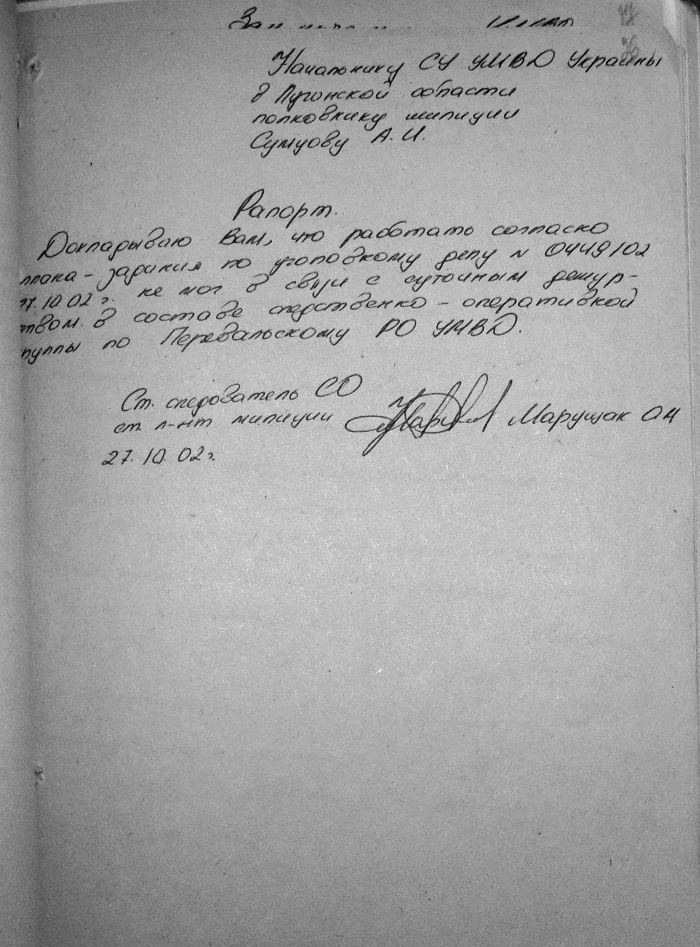 Начальнику СУ УМВД Украины
в Луганской области
полковнику милиции
Сумцову А. И.
Рапорт.
Докладываю Вам, что работать согласно
плана - задания по уголовному делу № 0449/02
27.10.02 г. не мог в связи с суточным дежур-
ством в составе следственно - оперативной
группы по Перевальскому РО УМВД.
Ст. следователь СО
ст. л-нт милиции Марущак О Н
27.10.02 г.